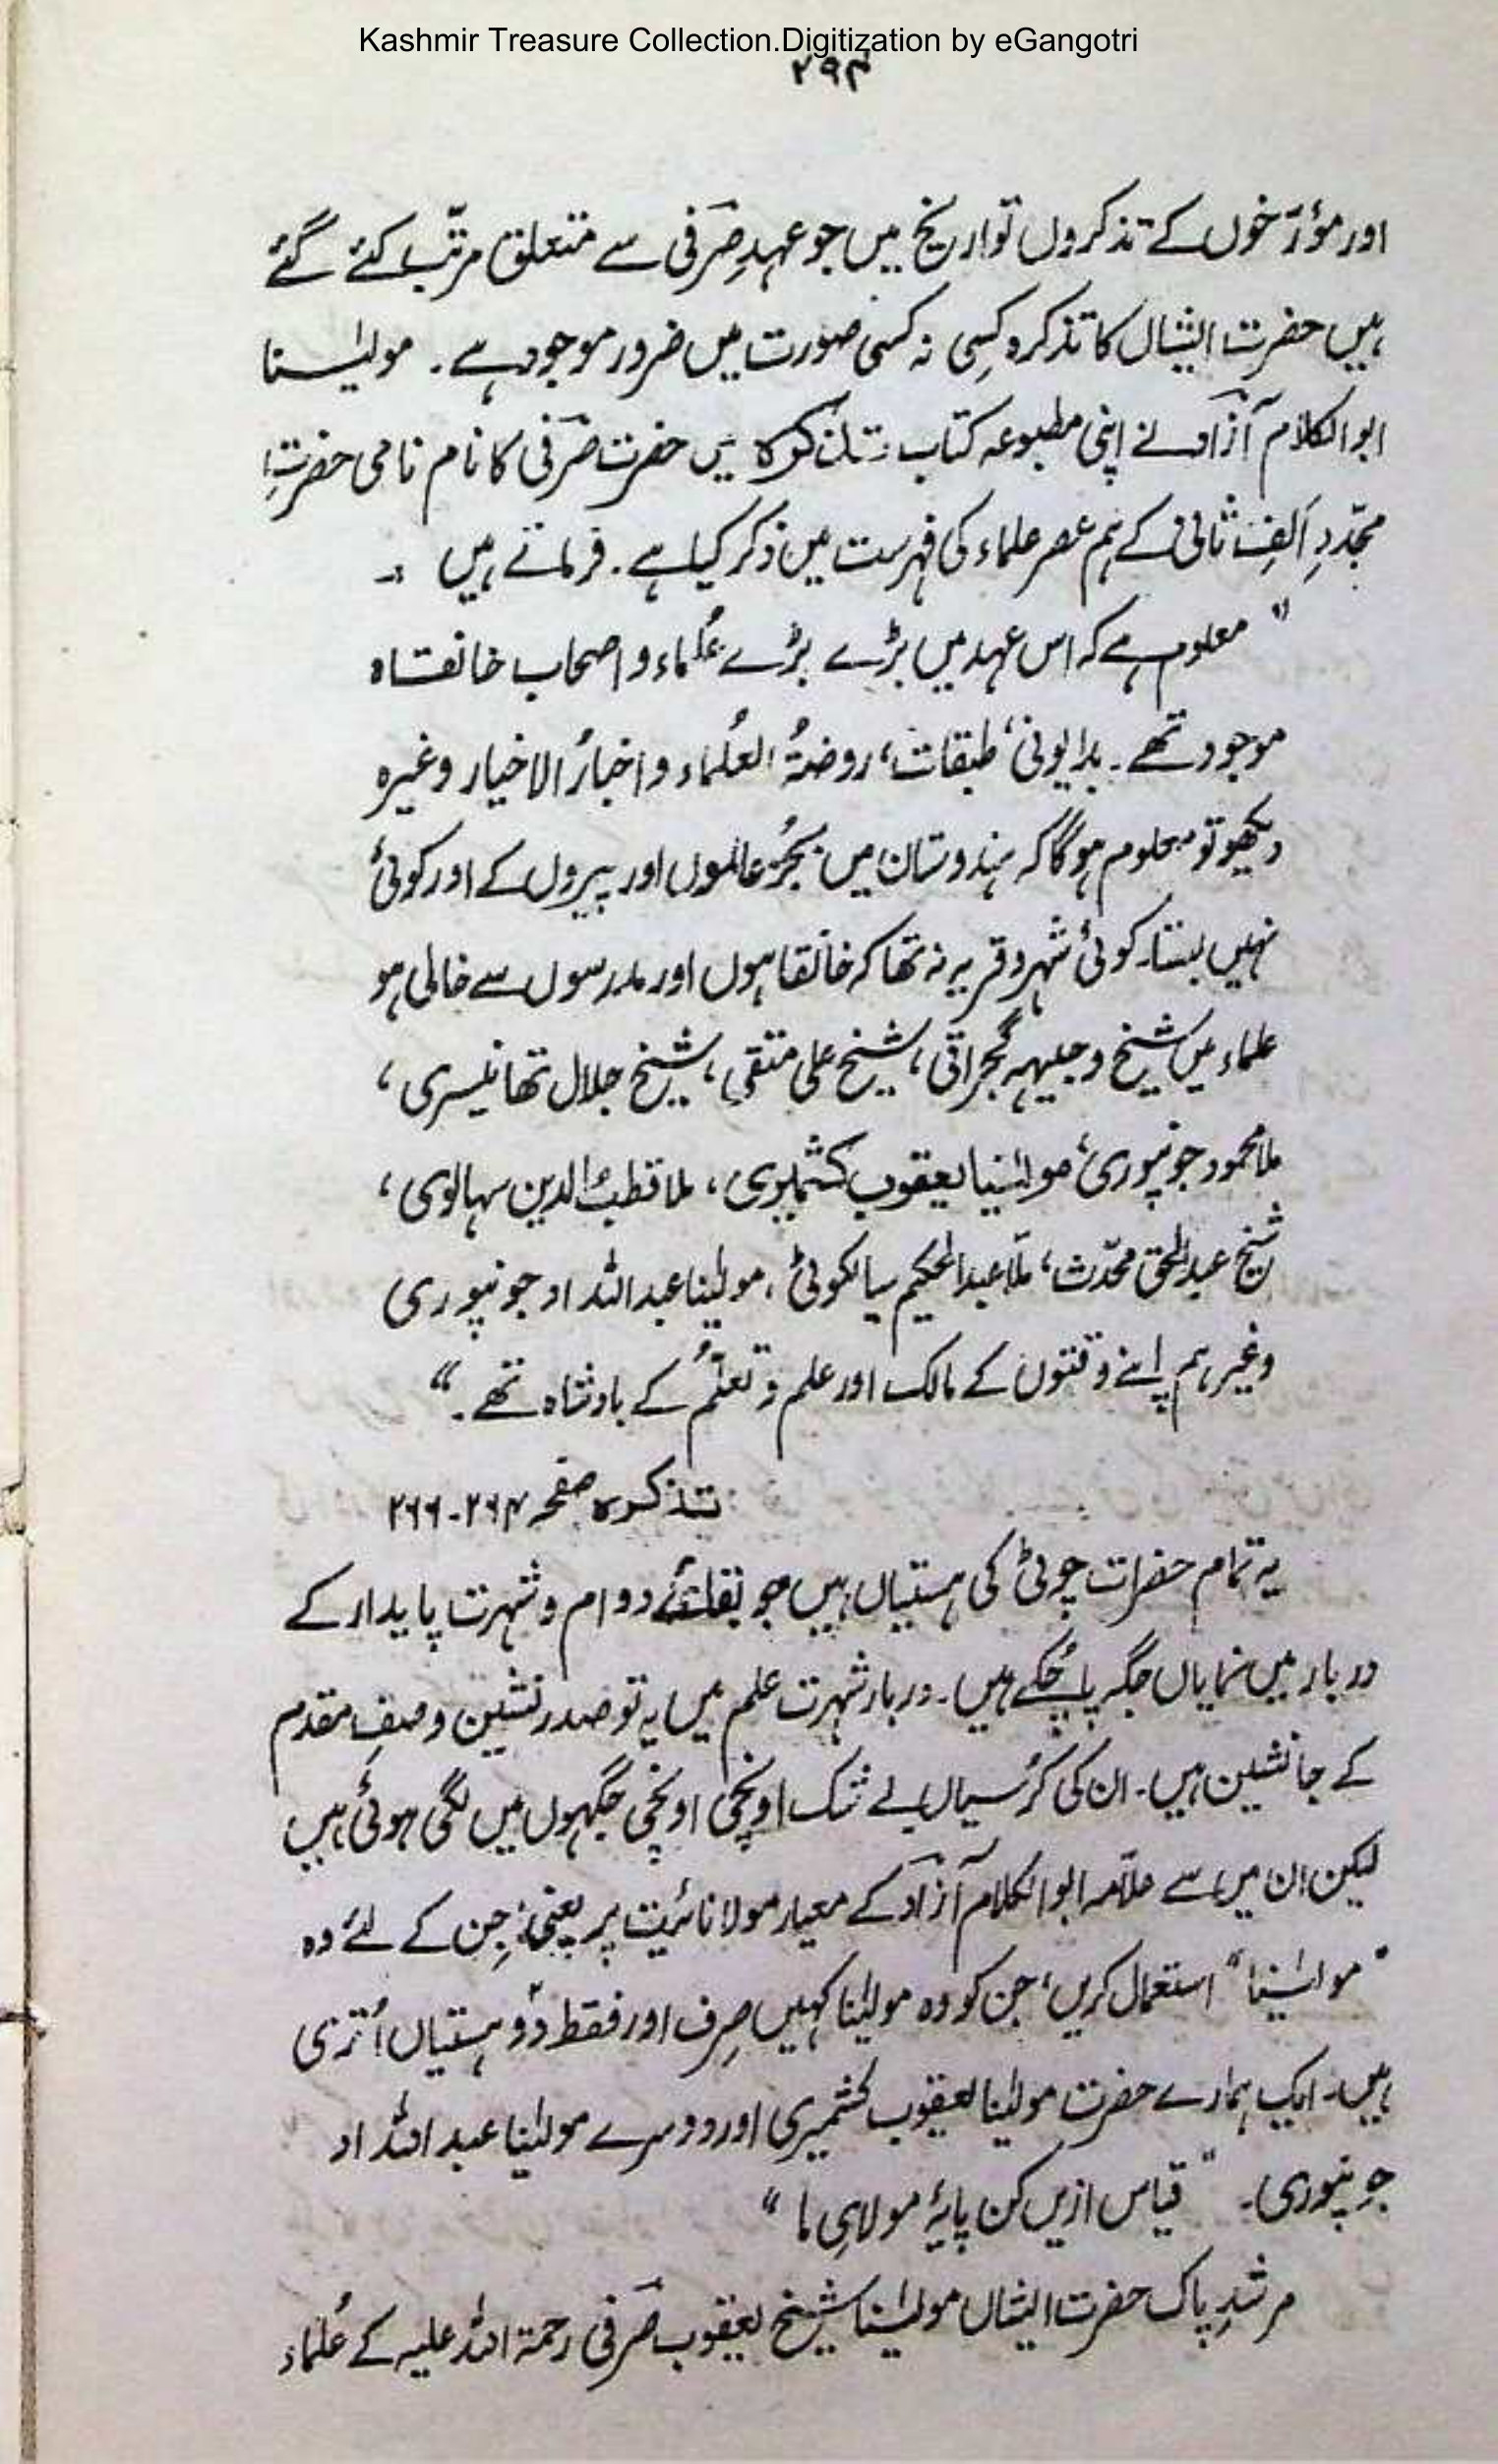 Kashmir Treasure Collection.Digitization by eGangotri
۲۹۴
اور مؤرّخوں کے تذکروں تواریخ میں جو عہدِ صَرفی سے متعلق مرتّب کئے گئے
ہیں حضرت ایشاں کا تذکرہ کِسی نہ کسی صورت میں ضرور موجود ہے۔ مولیٰنا
ابوالکلام آزاد نے اپنی مطبوعہ کتاب تذکرہ میں حضرت صَرفی کا نام نامی حضرتِ
مجدّدِ اَلفِ ثانی کے ہم عصر علماء کی فہرست میں ذکر کیا ہے۔ فرماتے ہیں :۔
" معلوم ہے کہ اس عہد میں بڑے بڑے عُلماء و اصحاب خانقاہ
موجود تھے۔ بدایونی، طبقات، روضۃُ العُلماء و اخبارُ الاخیار وغیرہ
دیکھو تو معلوم ہوگا کہ ہندوستان میں بجُز عالموں اور پیروں کے اور کوئی
نہیں بستا۔ کوئی شہر و قریہ نہ تھا کہ خانقاہوں اور مدرسوں سے خالی ہو
علماء میں شیخ وجیہہ گجراتی، شیخ علی متقی، شیخ جلال تھانیسری،
ملا محمود جونپوری، مولیٰنا یعقوب کشمیری، ملا قطب الدین سہالوی،
شیخ عبدالحق محدّث، ملّا عبدالحکیم سیالکوٹی، مولیٰنا عبداللہ او جونپوری
وغیرہم اپنے وقتوں کے مالک اور علم و تعلّمُ کے بادشاہ تھے۔"
تذکرہ صفحہ ۲۶۴-۲۶۶
یہ تمام حضرات چوٹی کی ہستیاں ہیں جو بقائے دوام و شہرت پایدار کے
دربار میں نمایاں جگہ پا چُکے ہیں۔ دربار شہرت علم میں یہ تو صدر نشین و صفِ مقدم
کے جانشین ہیں۔ ان کی کُرسیاں بے شک اونچی اونچی جگہوں میں لگی ہوئی ہیں
لیکن ان میں سے علاّمہ ابوالکلام آزاد کے معیار مولانائیت پر یعنی جِن کے لئے وہ
"مولیٰنا" استعمال کریں، جن کو وہ مولیٰنا کہیں صِرف اور فقط دو ہستیاں اُتری
ہیں۔ ایک ہمارے حضرت مولیٰنا یعقوب کشمیری اور دوسرے مولیٰنا عبداللہ اد
جونپوری۔ " قیاس ازیں کن پایۂ مولایِ ما "
مرشدِ پاک حضرت ایشاں مولیٰنا شیخ یعقوب صَرفی رحمۃ اللہ علیہ کے عُلماء